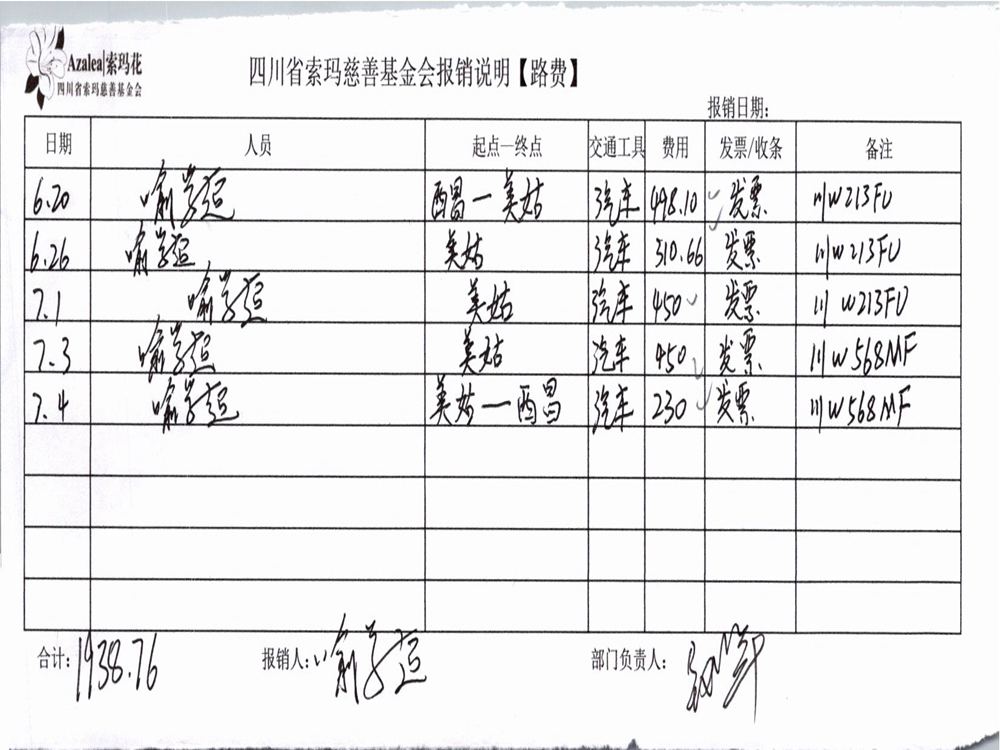 Azalea|索玛花
四川省索玛慈善基金会
四川省索玛慈善基金会报销说明【路费】
报销日期:
日期 人员 起点—终点 交通工具 费用 发票/收条 备注
6.20 喻学超 西昌—美姑 汽车 498.10 发票 川W213FU
6.26 喻学超 美姑 汽车 310.66 发票 川W213FU
7.1 喻学超 美姑 汽车 450 发票 川W213FU
7.3 喻学超 美姑 汽车 450 发票 川W568MF
7.4 喻学超 美姑—西昌 汽车 230 发票 川W568MF
合计: 1938.76 报销人: 喻学超 部门负责人: